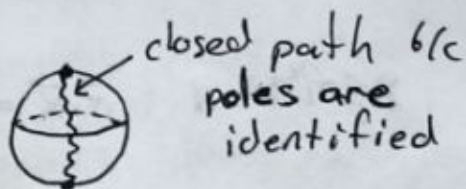 closed path b/c
poles are
identified